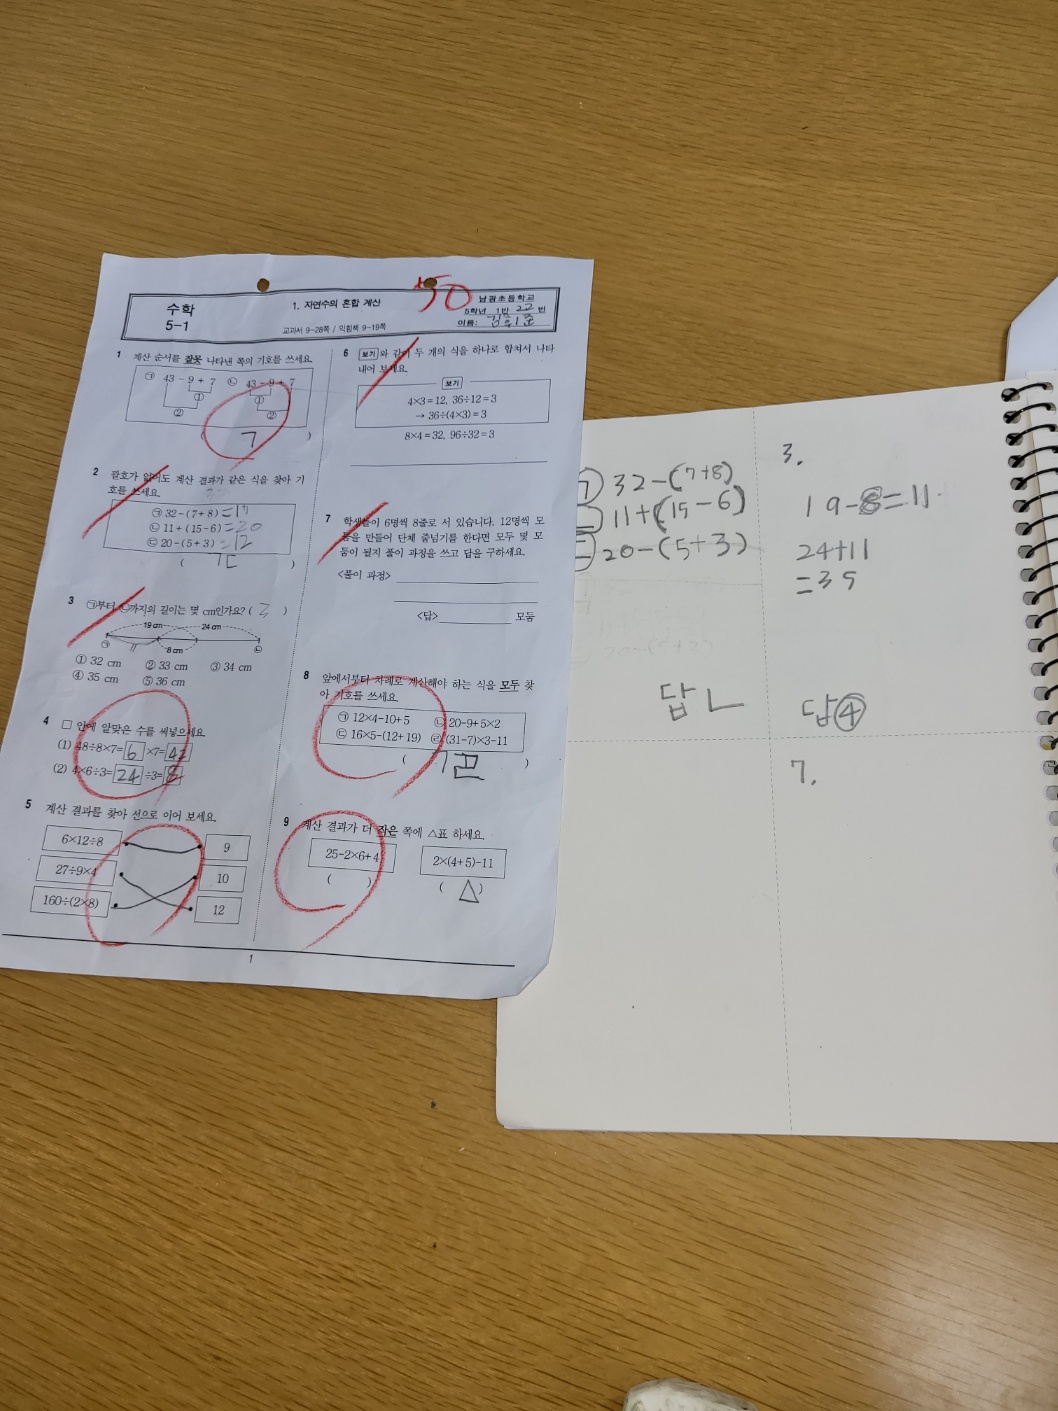 수학
5-1
1. 자연수의 혼합 계산
교과서 9~28쪽 / 익힘책 9~19쪽
50
남광초등학교
5학년 1반 22번
이름:
1 계산 순서를 잘못 나타낸 쪽의 기호를 쓰세요.
㉠ 43 - 9 + 7 ㉡ 43 - 9 + 7
① ①
② ②
( ㄱ )
2 괄호가 없어도 계산 결과가 같은 식을 찾아 기
호를 쓰세요.
㉠ 32-(7+8)=17
㉡ 11+(15-6)=20
㉢ 20-(5+3)=12
( ㄱㄷ )
3 ㉠부터 ㉡까지의 길이는 몇 cm인가요? ( 3 )
19 cm 24 cm
㉠ 11 8 cm ㉡
① 32 cm ② 33 cm ③ 34 cm
④ 35 cm ⑤ 36 cm
4 □ 안에 알맞은 수를 써넣으세요.
(1) 48÷8×7=6×7=42
(2) 4×6÷3=24÷3=8
5 계산 결과를 찾아 선으로 이어 보세요.
6×12÷8 9
27÷9×4 10
160÷(2×8) 12
6 보기와 같이 두 개의 식을 하나로 합쳐서 나타
내어 보세요.
보기
4×3=12, 36÷12=3
→ 36÷(4×3)=3
8×4=32, 96÷32=3
7 학생들이 6명씩 8줄로 서 있습니다. 12명씩 모
둠을 만들어 단체 줄넘기를 한다면 모두 몇 모
둠이 될지 풀이 과정을 쓰고 답을 구하세요.
<풀이 과정>
<답> 모둠
8 앞에서부터 차례로 계산해야 하는 식을 모두 찾
아 기호를 쓰세요.
㉠ 12×4-10+5 ㉡ 20-9+5×2
㉢ 16×5-(12+19) ㉣ (31-7)×3-11
( ㄱㄹ )
9 계산 결과가 더 작은 쪽에 △표 하세요.
25-2×6+4 2×(4+5)-11
( ) ( △ )
1
32-(7+8)
11+(15-6)
20-(5+3)
답 ㄴ
3.
19-8=11
24+11
=35
답 ④
7.